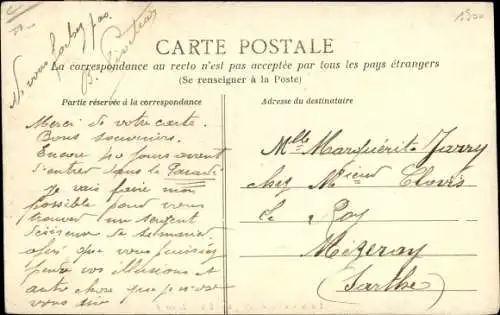 1300
Ne vous fachez pas.
CARTE POSTALE
La correspondance au recto n'est pas acceptée par tous les pays étrangers
(Se renseigner à la Poste)
Partie réservée à la correspondance
Adresse du destinataire
Merci de votre carte.
Bons souvenirs.
Encore 40 jours avant
d'entrer dans le Paradis
Je vais faire mon
possible pour vous
trouver un sergent
que vous puissiez
vos illusions et
autre chose que je n'ose
vous dire
Mlle Marguerite Jarry
chez Mr Clovis
Le Roy
Mézeray
(Sarthe)